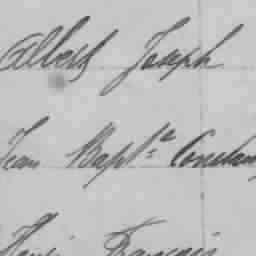 Albert Joseph
Jean Bapt.te Constan
Henri François